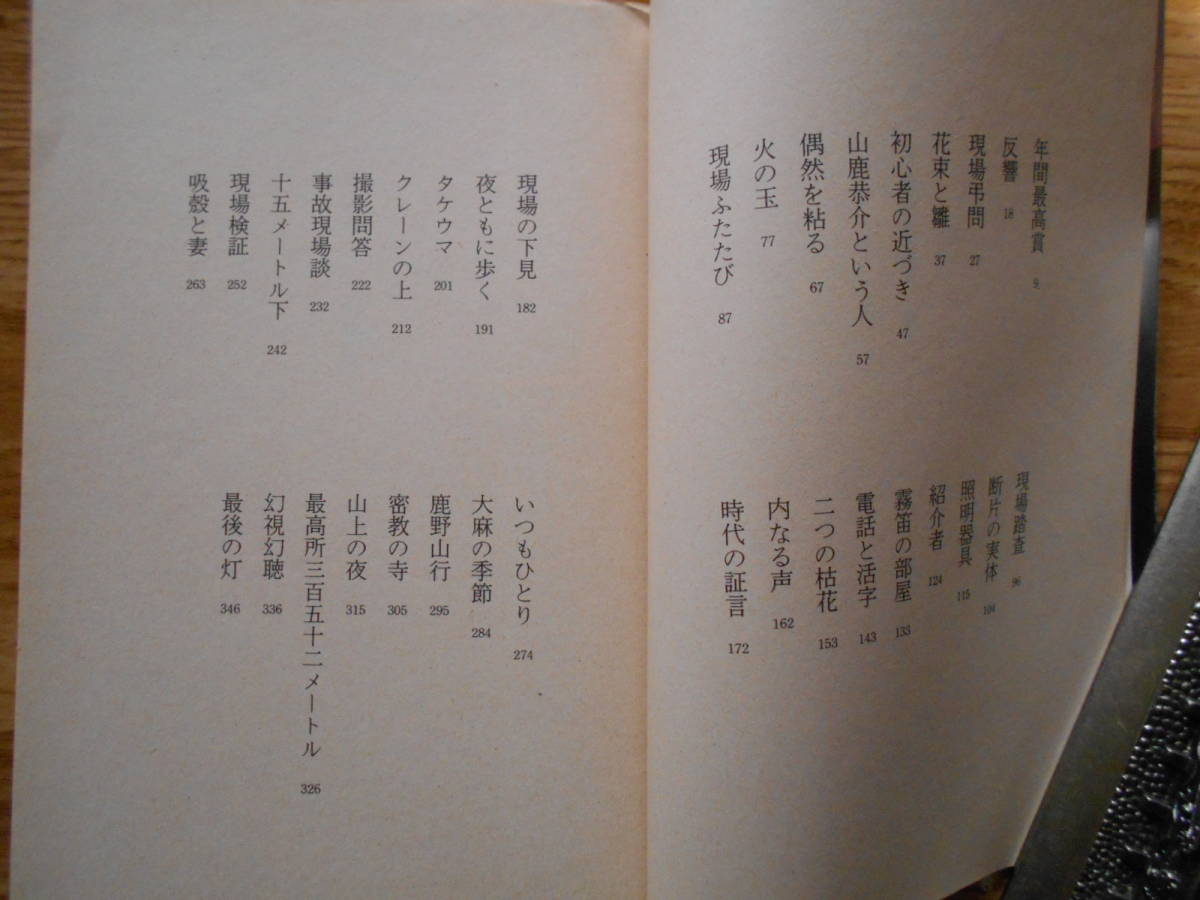 年間最高賞 9
反響 18
現場弔問 27
花束と雛 37
初心者の近づき 47
山鹿恭介という人 57
偶然を粘る 67
火の玉 77
現場ふたたび 87
現場踏査 96
断片の実体 104
照明器具 115
紹介者 124
霧笛の部屋 133
電話と活字 143
二つの枯花 153
内なる声 162
時代の証言 172
現場の下見 182
夜ともに歩く 191
タケウマ 201
クレーンの上 212
撮影問答 222
事故現場談 232
十五メートル下 242
現場検証 252
吸殻と妻 263
いつもひとり 274
大麻の季節 284
鹿野山行 295
密教の寺 305
山上の夜 315
最高所三百五十二メートル 326
幻視幻聴 336
最後の灯 346